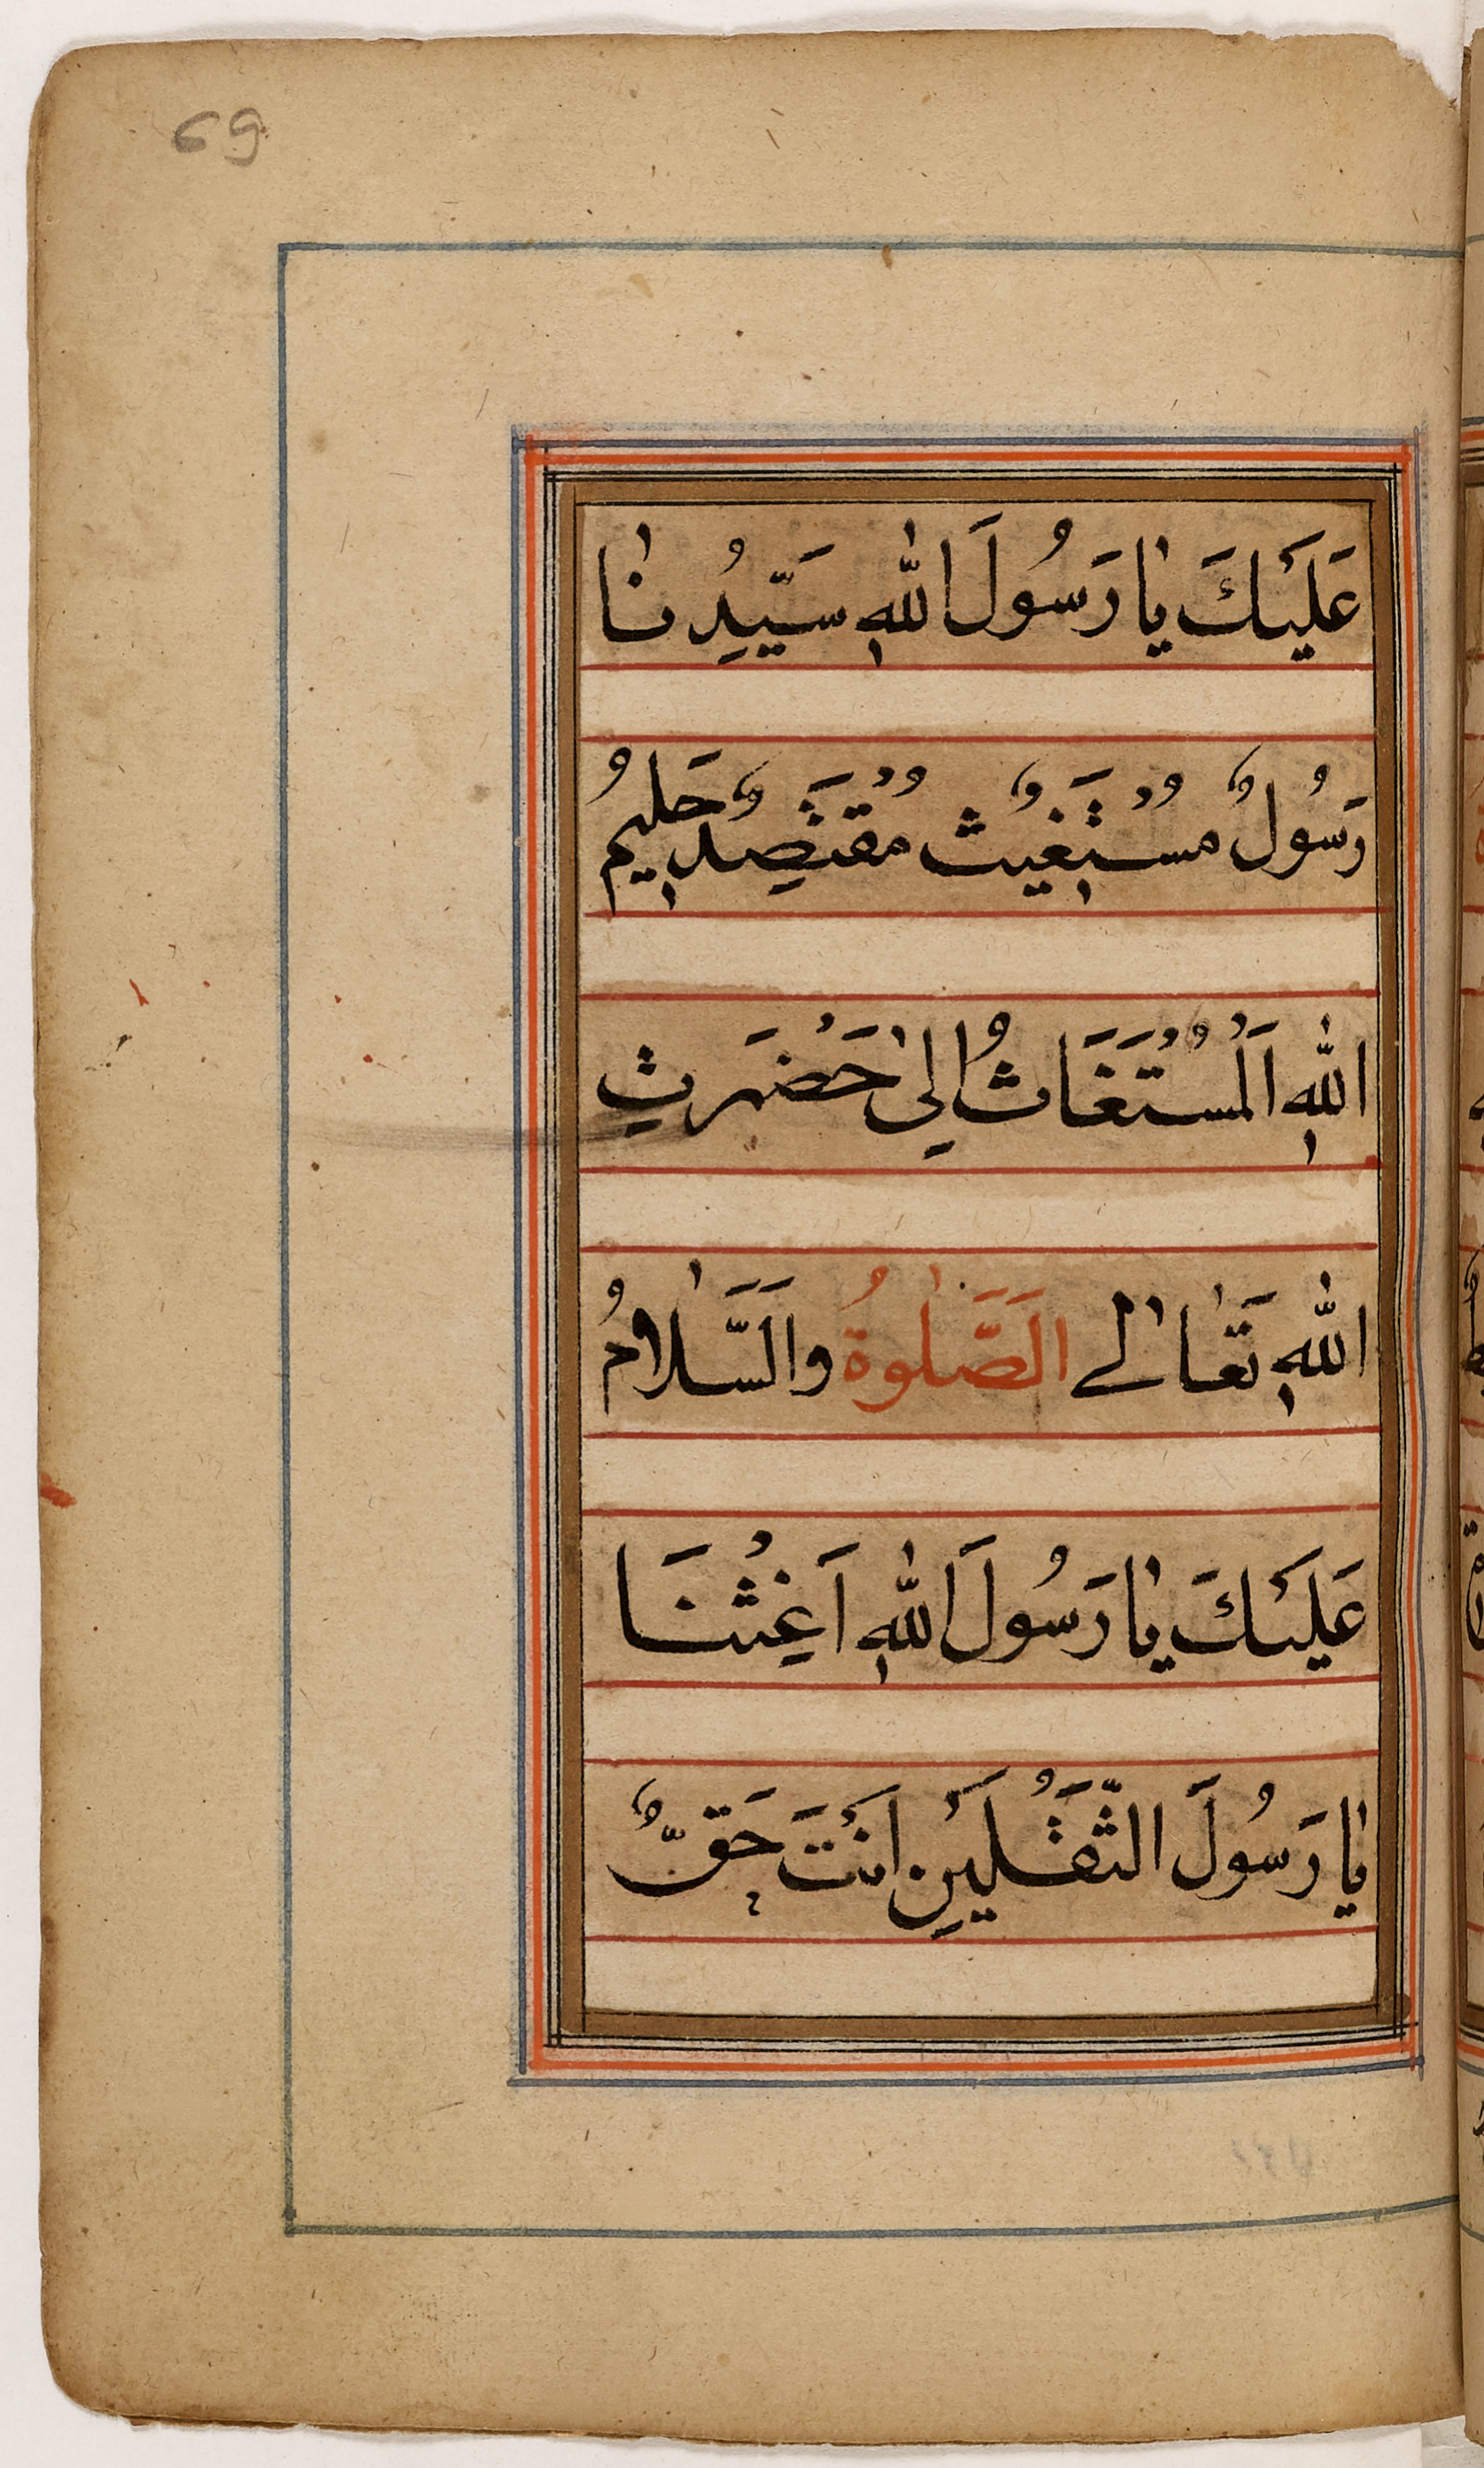 69
عَلَيْكَ يٰا رَسُولَ اللّٰهِ سَيِّدُنٰا
رَسُولٌ مُسْتَغِيثٌ مُقْتَصِدٌ حَلِيمُ
اللّٰهِ اَلْمُسْتَغَاثُ اِلىٰ حَضْرَتِ
اللّٰهِ تَعٰالىٰ اَلصَّلٰوةُ وَالسَّلٰامُ
عَلَيْكَ يٰا رَسُولَ اللّٰهِ اَغِثْنَا
يٰا رَسُولَ الثَّقَلَيْنِ اَنْتَ حَقٌّ